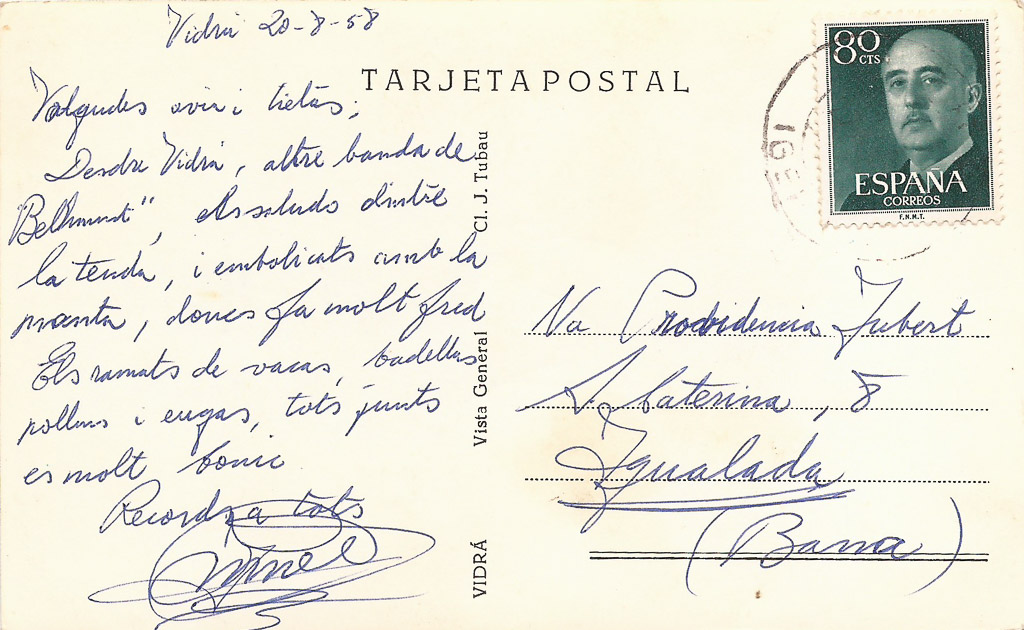 Vidrá 20-8-58
TARJETA POSTAL
Volgudes avia i tietas;
Desdre Vidrá, altre banda de
"Bellmunt", els saludo dintre
la tenda, i embolicats amb la
manta, doncs fa molt fred
Els ramats de vacas, badellas
pollins i eugas, tots junts
es molt bonic.
Records a tots
VIDRÁ Vista General Cl. J. Tubau
80 CTS
ESPAÑA
CORREOS
F.N.M.T.
Na Providencia Jubert
S. Caterina, 8
Igualada
(Barna)